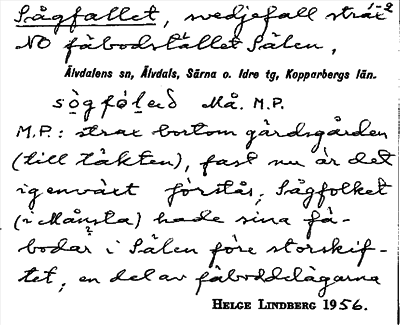 Sågfallet, svedjefall strax 1-2
NO fäbodstället Sälen,
Älvdalens sn, Älvdals, Särna o. Idre tg, Kopparbergs län.
Må. M.P.
M.P.: strax bortom gärdsgården
(till täkten), fast nu är det
igenväxt förstås; Sågfolket
(i Månsta) hade sina fä-
bodar i Sälen före storskif-
tet, en del av fäboddelägarna
HELGE LINDBERG 1956.